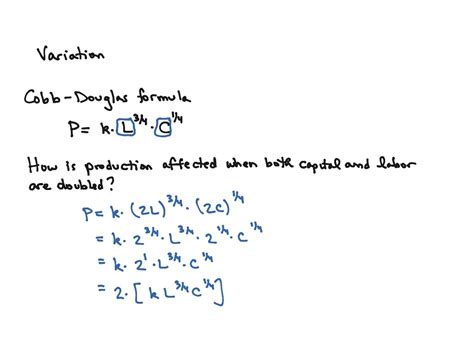 Variation
Cobb-Douglas formula
P= k·L^3/4·C^1/4
How is production affected when both capital and labor
are doubled?
P= k·(2L)^3/4·(2C)^1/4
= k·2^3/4·L^3/4·2^1/4·C^1/4
= k·2^1·L^3/4·C^1/4
= 2·[kL^3/4C^1/4]